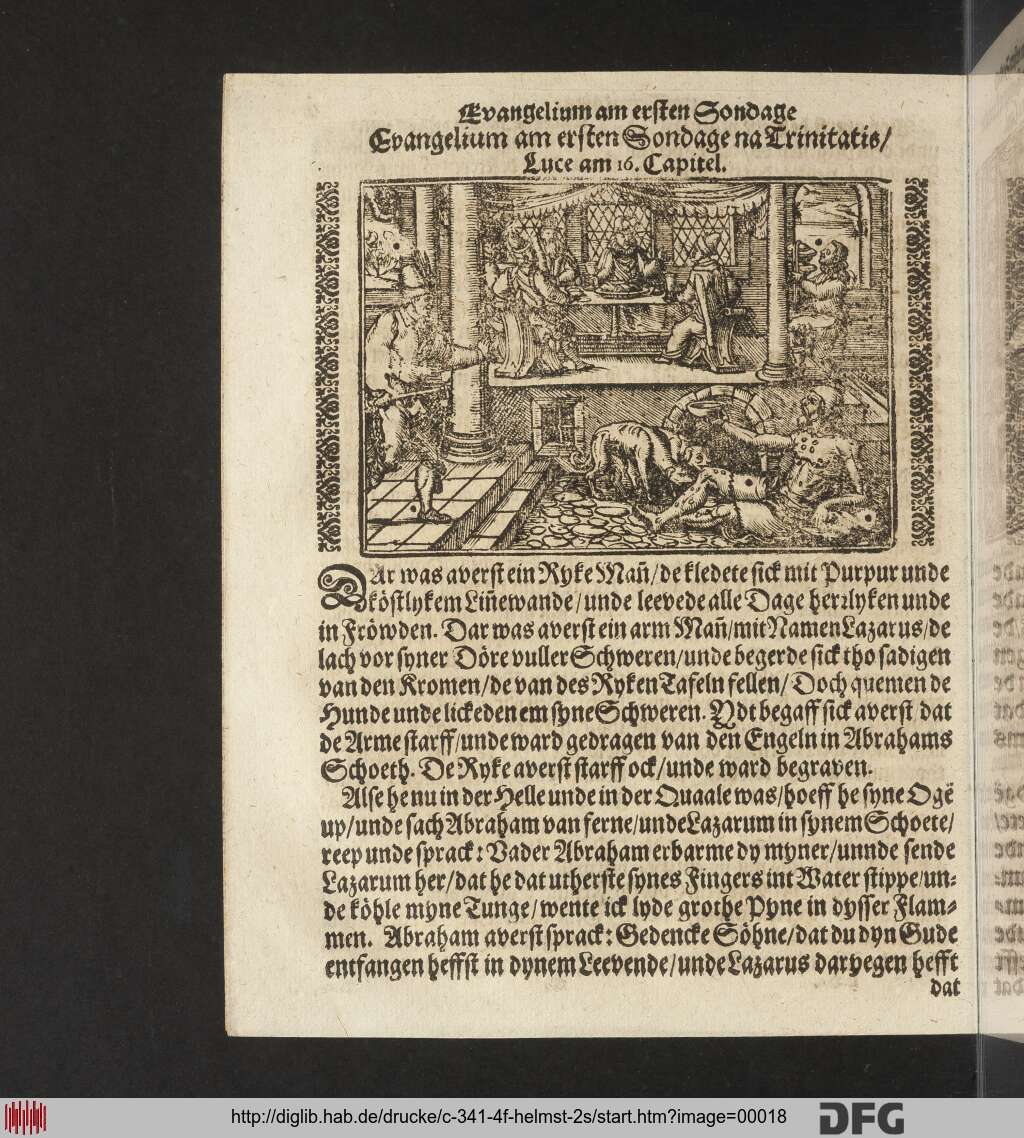 Evangelium am ersten Sondage
Evangelium am ersten Sondage na Trinitatis/
Luce am 16. Capitel.
DAr was averst ein Ryke Mañ/de kledete sick mit Purpur unde
köstlykem Liñewande/unde leevede alle Dage herrlyken unde
in Fröwden. Dar was averst ein arm Mañ/mit Namen Lazarus/de
lach vor syner Döre vuller Schweren/unde begerde sick tho sadigen
van den Kromen/de van des Ryken Tafeln fellen/Doch quemen de
Hunde unde lickeden em syne Schweren. Ydt begaff sick averst dat
de Arme starff/unde ward gedragen van den Engeln in Abrahams
Schoeth. De Ryke averst starff ock/unde ward begraven.
Alse he nu in der Helle unde in der Quaale was/hoeff he syne Ogē
up/unde sach Abraham van ferne/unde Lazarum in synem Schoete/
reep unde sprack: Vader Abraham erbarme dy myner/unnde sende
Lazarum her/dat he dat utherste synes Fingers int Water stippe/un-
de köhle myne Tunge/wente ick lyde grothe Pyne in dysser Flam-
men. Abraham averst sprack: Gedencke Söhne/dat du dyn Gude
entfangen heffst in dynem Leevende/unde Lazarus daryegen hefft
dat
http://diglib.hab.de/drucke/c-341-4f-helmst-2s/start.htm?image=00018
DFG